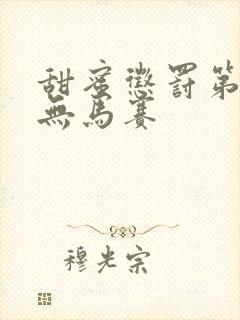 甜蜜懲罰第
無馬賽
穆光宗